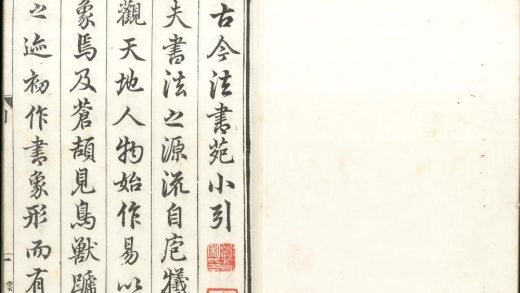 古今法書苑小引
夫書法之源流自庖犧
觀天地人物始作易以
象焉及蒼頡見鳥獸蹏
之迹初作書象形而有